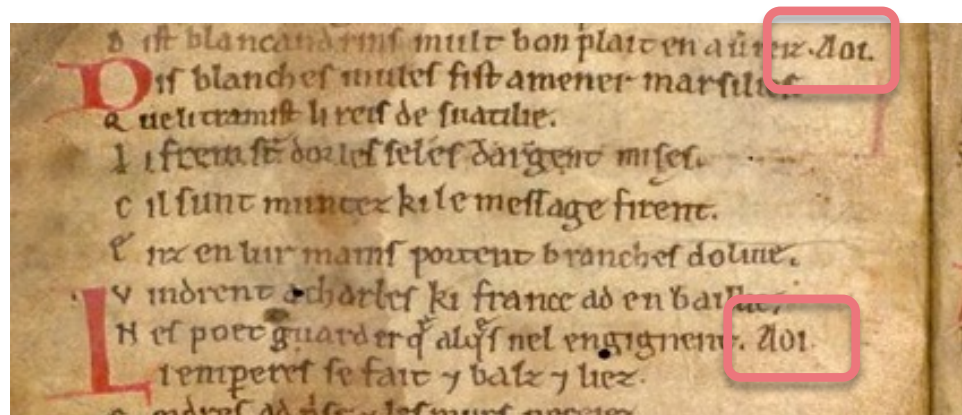 D ist blancandrins mult bon plait en aūrez. Aoi.
Dis blanches mules fist amener marsilies
Q ueli tramist li reis de suatilie.
L i frein st̄ dor les seles dargent mises.
C il sunt muntez ki le message firent.
E nz en lur mains portent branches doliue.
V indrent a charles ki france ad en baillie.
N es poet guarder q̄ alq̄s nel engignent. Aoi.
Li emperes se fait ⁊ balz ⁊ liez.